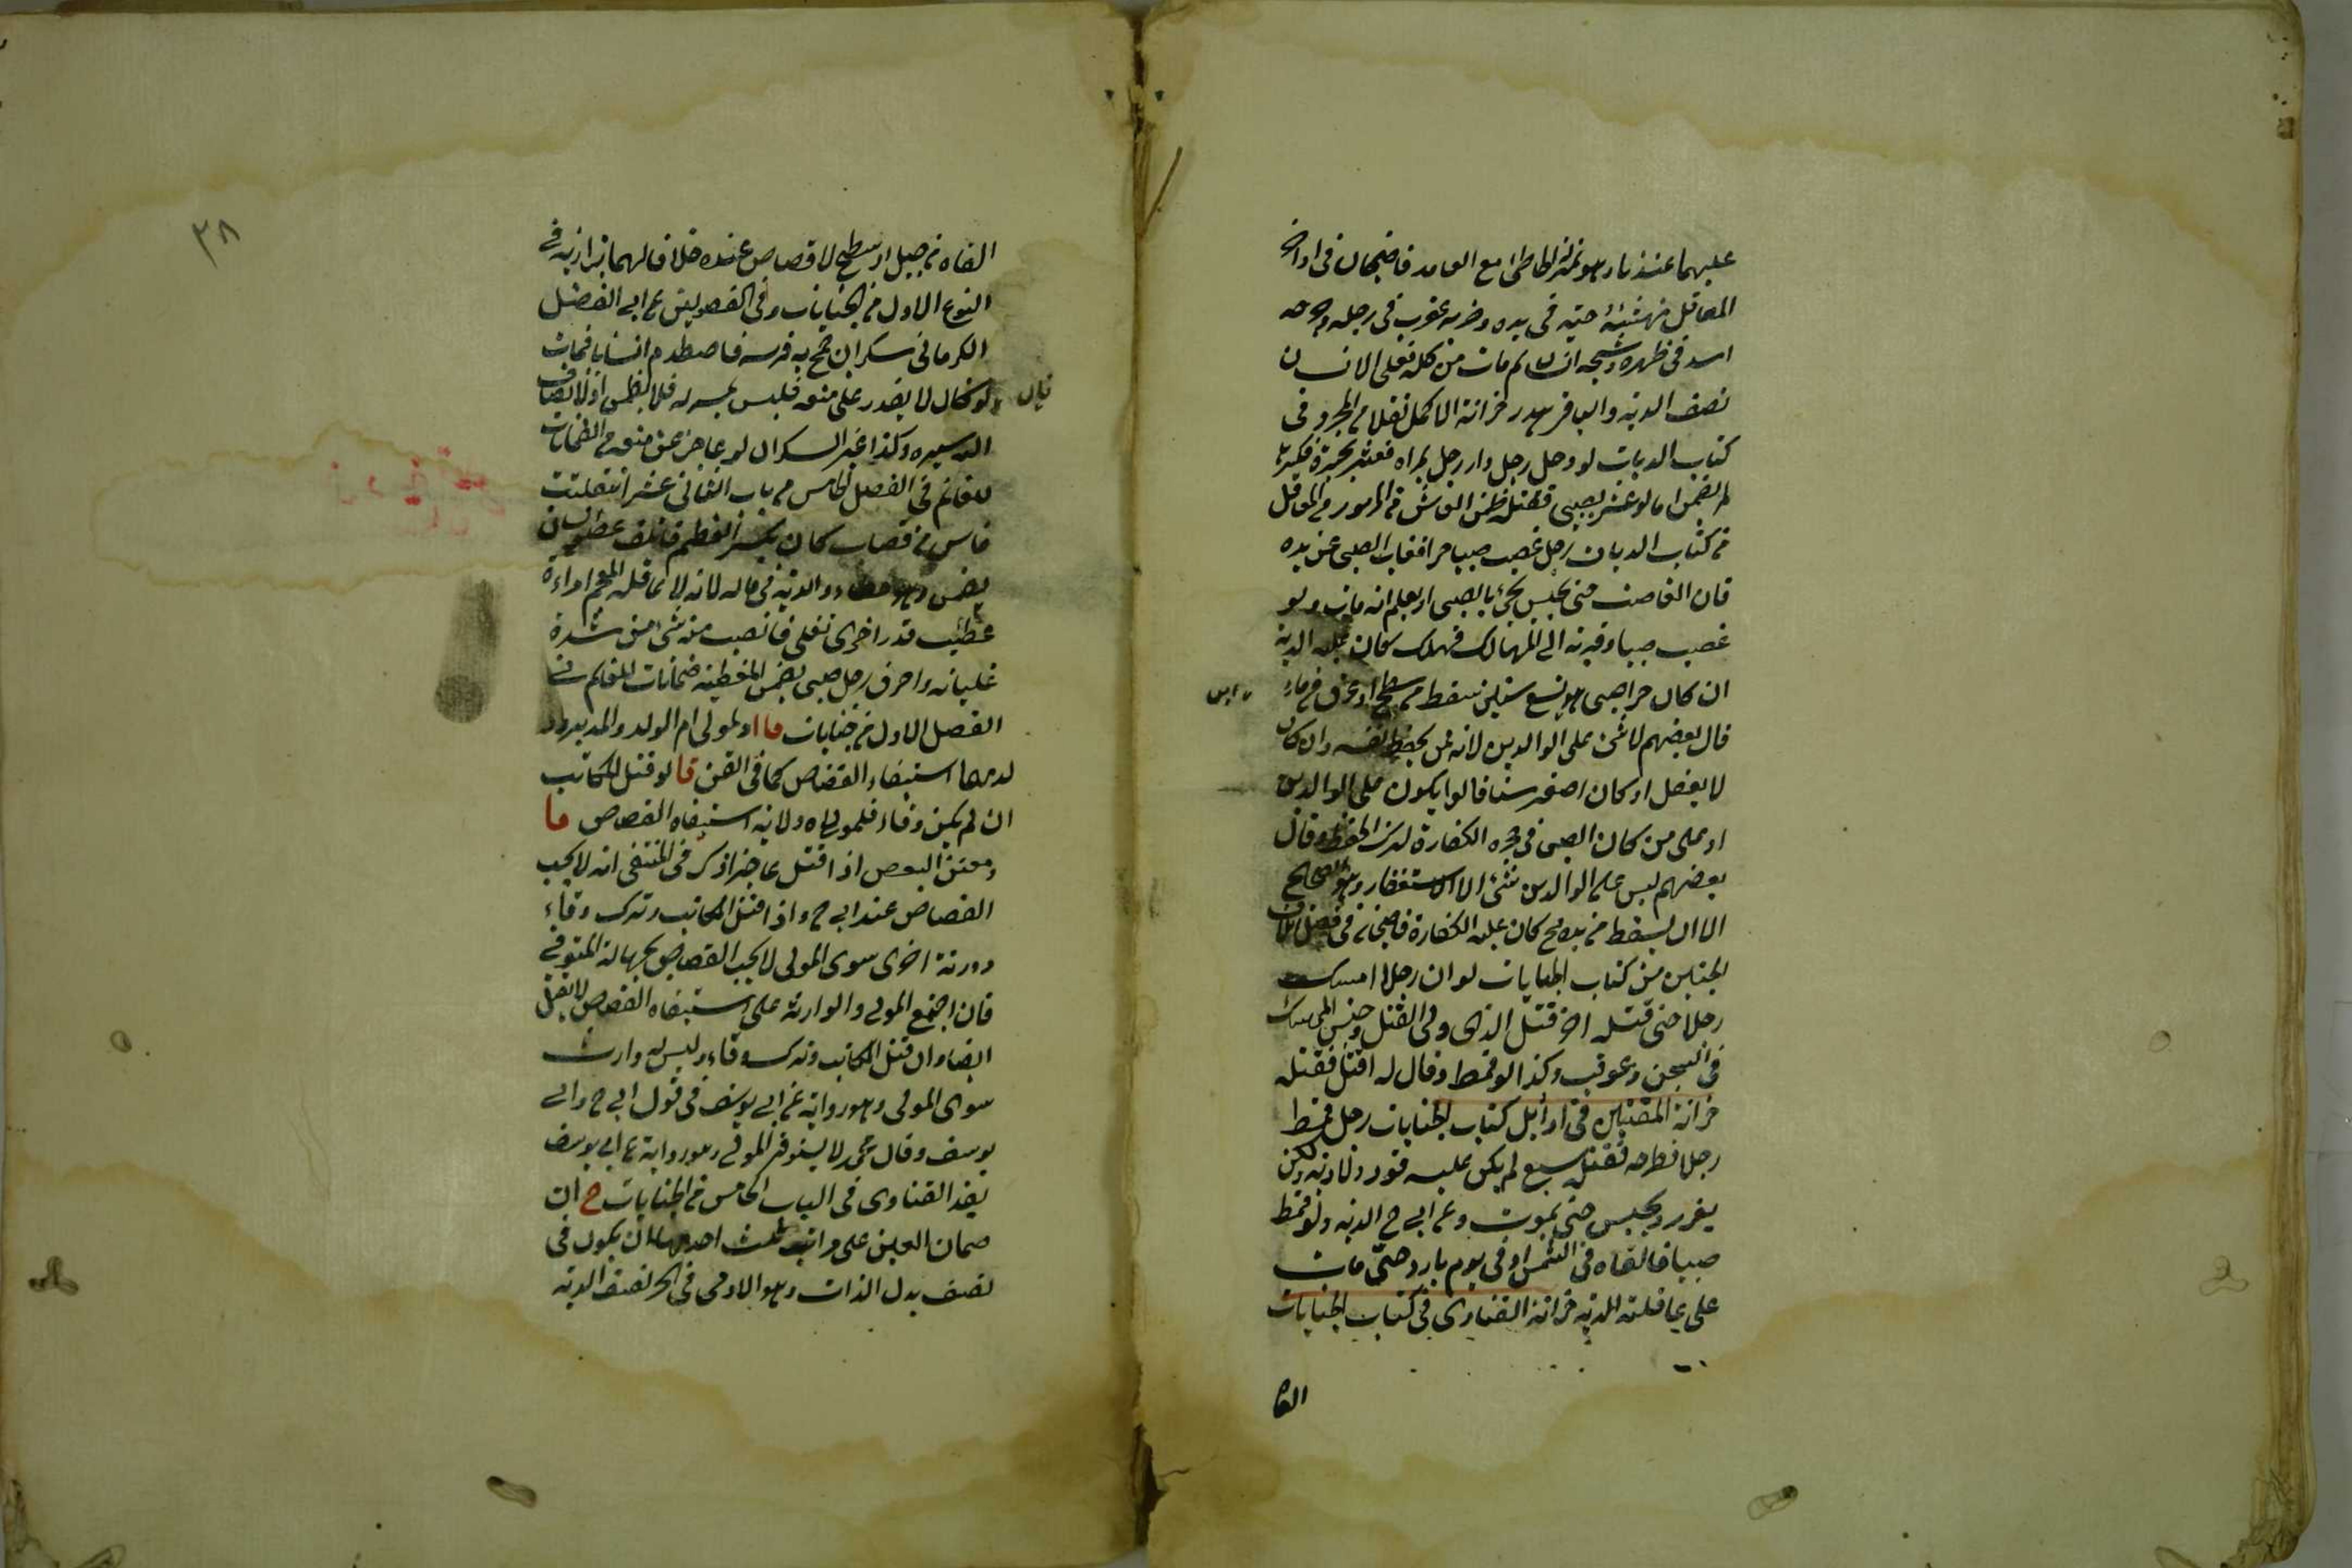 عليهما عندنا وهو بمنزلة الخاطئ مع العامد قاضيخان في اواخر
المعاقل نهشته حية في يده وضربه عقرب في رجله وجرحه
اسد في ظهره وشجه انسان ثم مات من كله فعلى الانسان
نصف الدية والباقي هدر خزانة الاكمل نقلا من المجرد في
كتاب الديات لو دخل رجل دار رجل فعثر بحجرة فكسرها
لم يضمن اما لو عثر بصبي فقتله ضمن في المزبور من المعاقل
من كتاب الديات رجل غصب صبيا حرا فغاب الصبي عن يده
فان الغاصب حتى يحبس يجئ بالصبي او يعلم انه مات ولو
غصب صبيا وقربه الى المهالك فهلك كان عليه الدية
ان كان حرا صبي هو تسع سنين سقط من سطح او غرق في ماء
قال بعضهم لا شئ على الوالدين لانه ممن يحفظ نفسه وان كان
لا يعقل او كان اصغر سنا قالوا يكون على الوالدين
او على من كان الصبي في حجره الكفارة لترك الحفظ وقال
بعضهم ليس على الوالدين شئ الا الاستغفار وهو الصحيح
الا ان يسقط من يده كان عليه الكفارة قاضيخان في فصل اتلاف
الجنين من كتاب الجنايات لو ان رجلا امسك
رجلا حتى قتله اخر قتل الذي ولى القتل وحبس الممسك
في السجن وعوقب وكذا لو قمط وقال له اقتل فقتله
خزانة المفتين في اوايل كتاب الجنايات رجل قمط
رجلا فطرحه فقتله سبع لم يكن عليه قود ولا دية ولكن
يعزر ويحبس حتى يموت وعن ابي ح الدية ولو قمط
صبيا فالقاه في الشمس او في يوم بارد حتى مات
على عاقلته الدية خزانة الفتاوى في كتاب الجنايات
القاه
٣٨
القاه من جبل او سطح لا قصاص عنده خلافا لهما بزازيه في
النوع الاول من الجنايات وفي الفصولين عن ابي الفضل
الكرماني سكران جمح به فرسه فاصطدم انسانا فمات
لو كان لا يقدر على منعه فليس بمسير له فلا يضمن اذ لا يضاف
اليه سيره وكذا غير السكران لو عاجزا عن منعه من الضمانات
للغانم في الفصل الخامس من باب الثاني عشر انفلتت
فاس من قصاب كان يكسر العظم فاتلف عضو انسان
يضمن وهو خطاء والدية في ماله لانه لا عاقلة للعجم امراءة
غطيت قدر اخرى تغلى فانصب منه شئ من شدة
غليانه واحرق رجل صبي يضمن المغطية ضمانات للغانم في
الفصل الاول من جنايات قا او لمولى ام الولد والمدبر
لدهما استيفاء القصاص كما في القن قا لو قتل المكاتب
ان لم يكن وفاء فلمولاه ولاية استيفاء القصاص قا
ومعتق البعض اذا قتل عاجزا ذكر في المنتقى انه لا يجب
القصاص عند ابي ح واذا قتل المكاتب وترك وفاء
وورثة اخرى سوى المولى لا يجب القصاص لجهالة المتوفى
فان اجتمع المولى والوارثة على استيفاء القصاص لا يقتل
ايضا وان قتل المكاتب وترك وفاء وليس له وارث
سوى المولى وهو رواية عن ابي يوسف في قول ابي ح وابي
يوسف وقال محمد لا يستوفى المولى وهو رواية عن ابي يوسف
نقد الفتاوى في الباب الخامس من الجنايات ح ان
ضمان العين على مراتب ثلث احدهما ان يكون في
نصف بدل الذات وهو الاولى في الحر نصف الدية